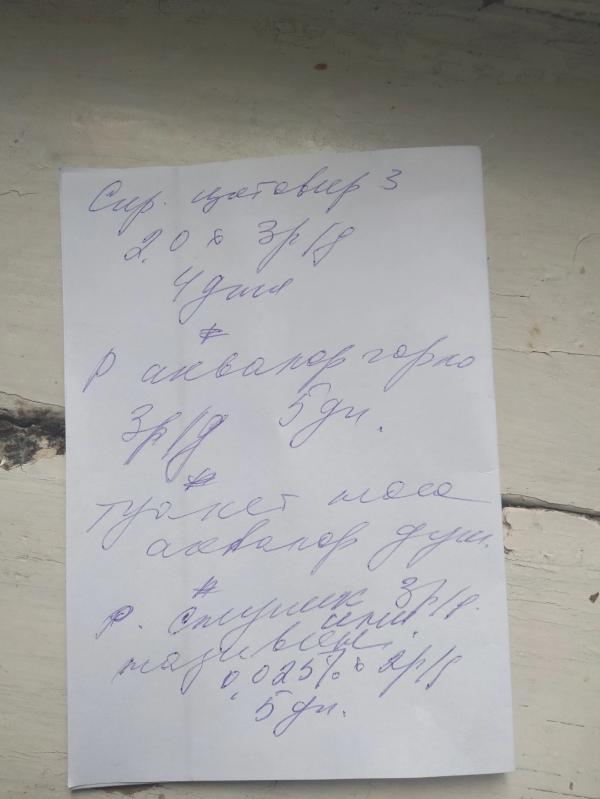 Сир. цитовир 3
2,0 х 3р/д
4 дня
#
Р аквалор горло
3р/д 5 дн.
#
туалет носа
аквалор душ.
#
Р. 3р/д.
или
називин
0,025% х 2р/д
5 дн.